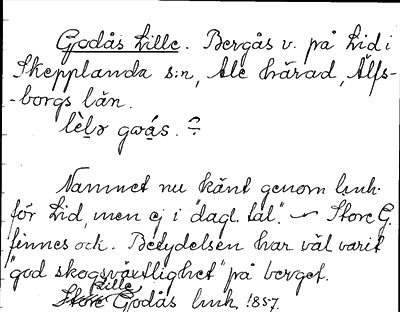 Godås Lille. Bergås v. på Lid i
Skepplanda s:n, Ale härad, Älfs-
-borgs län.
lèlə gwás.
Namnet nu känt genom lmk.
för Lid, men ej i "dagl. tal". — Store G.
finnes och. Betydelsen har väl varit
"god skogsväxtlighet" på berget.
Lille
Store Godås lmk 1857.